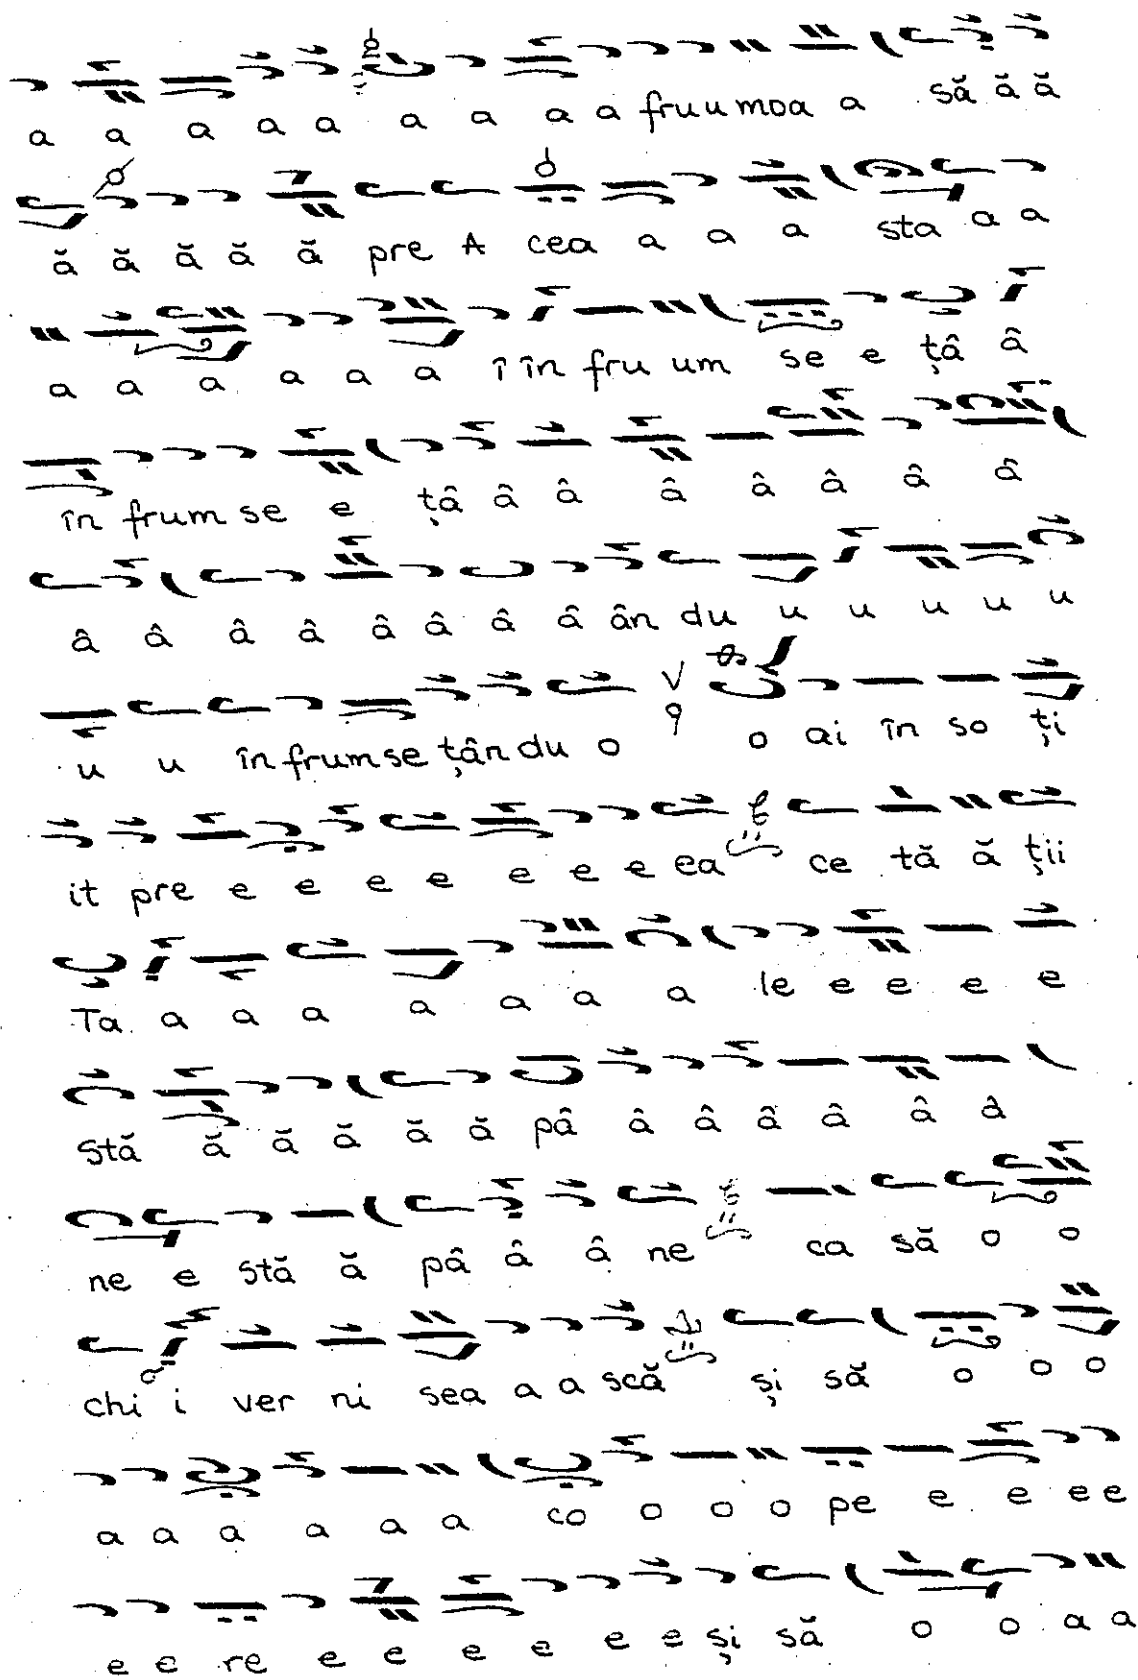 a a a a a a a a a fruumoa a să ă ă
ă ă ă ă ă pre A cea a a a sta a a
a a a a a a î în fru um se e țâ â
în frum se e țâ â â â â â â â
â â â â â â â â ân du u u u u u
u u înfrumsețându o o ai în so ți
it pre e e e e e e e ea ce tă ă ții
Ta a a a a a a a le e e e e
stă ă ă ă ă ă pâ â â â â â â
ne e stă ă pâ â â ne ca să o o
chi i ver ni sea a a scă și să o o o
a a a a a a co o o o pe e e e e
e e re e e e e e e și să o o a a